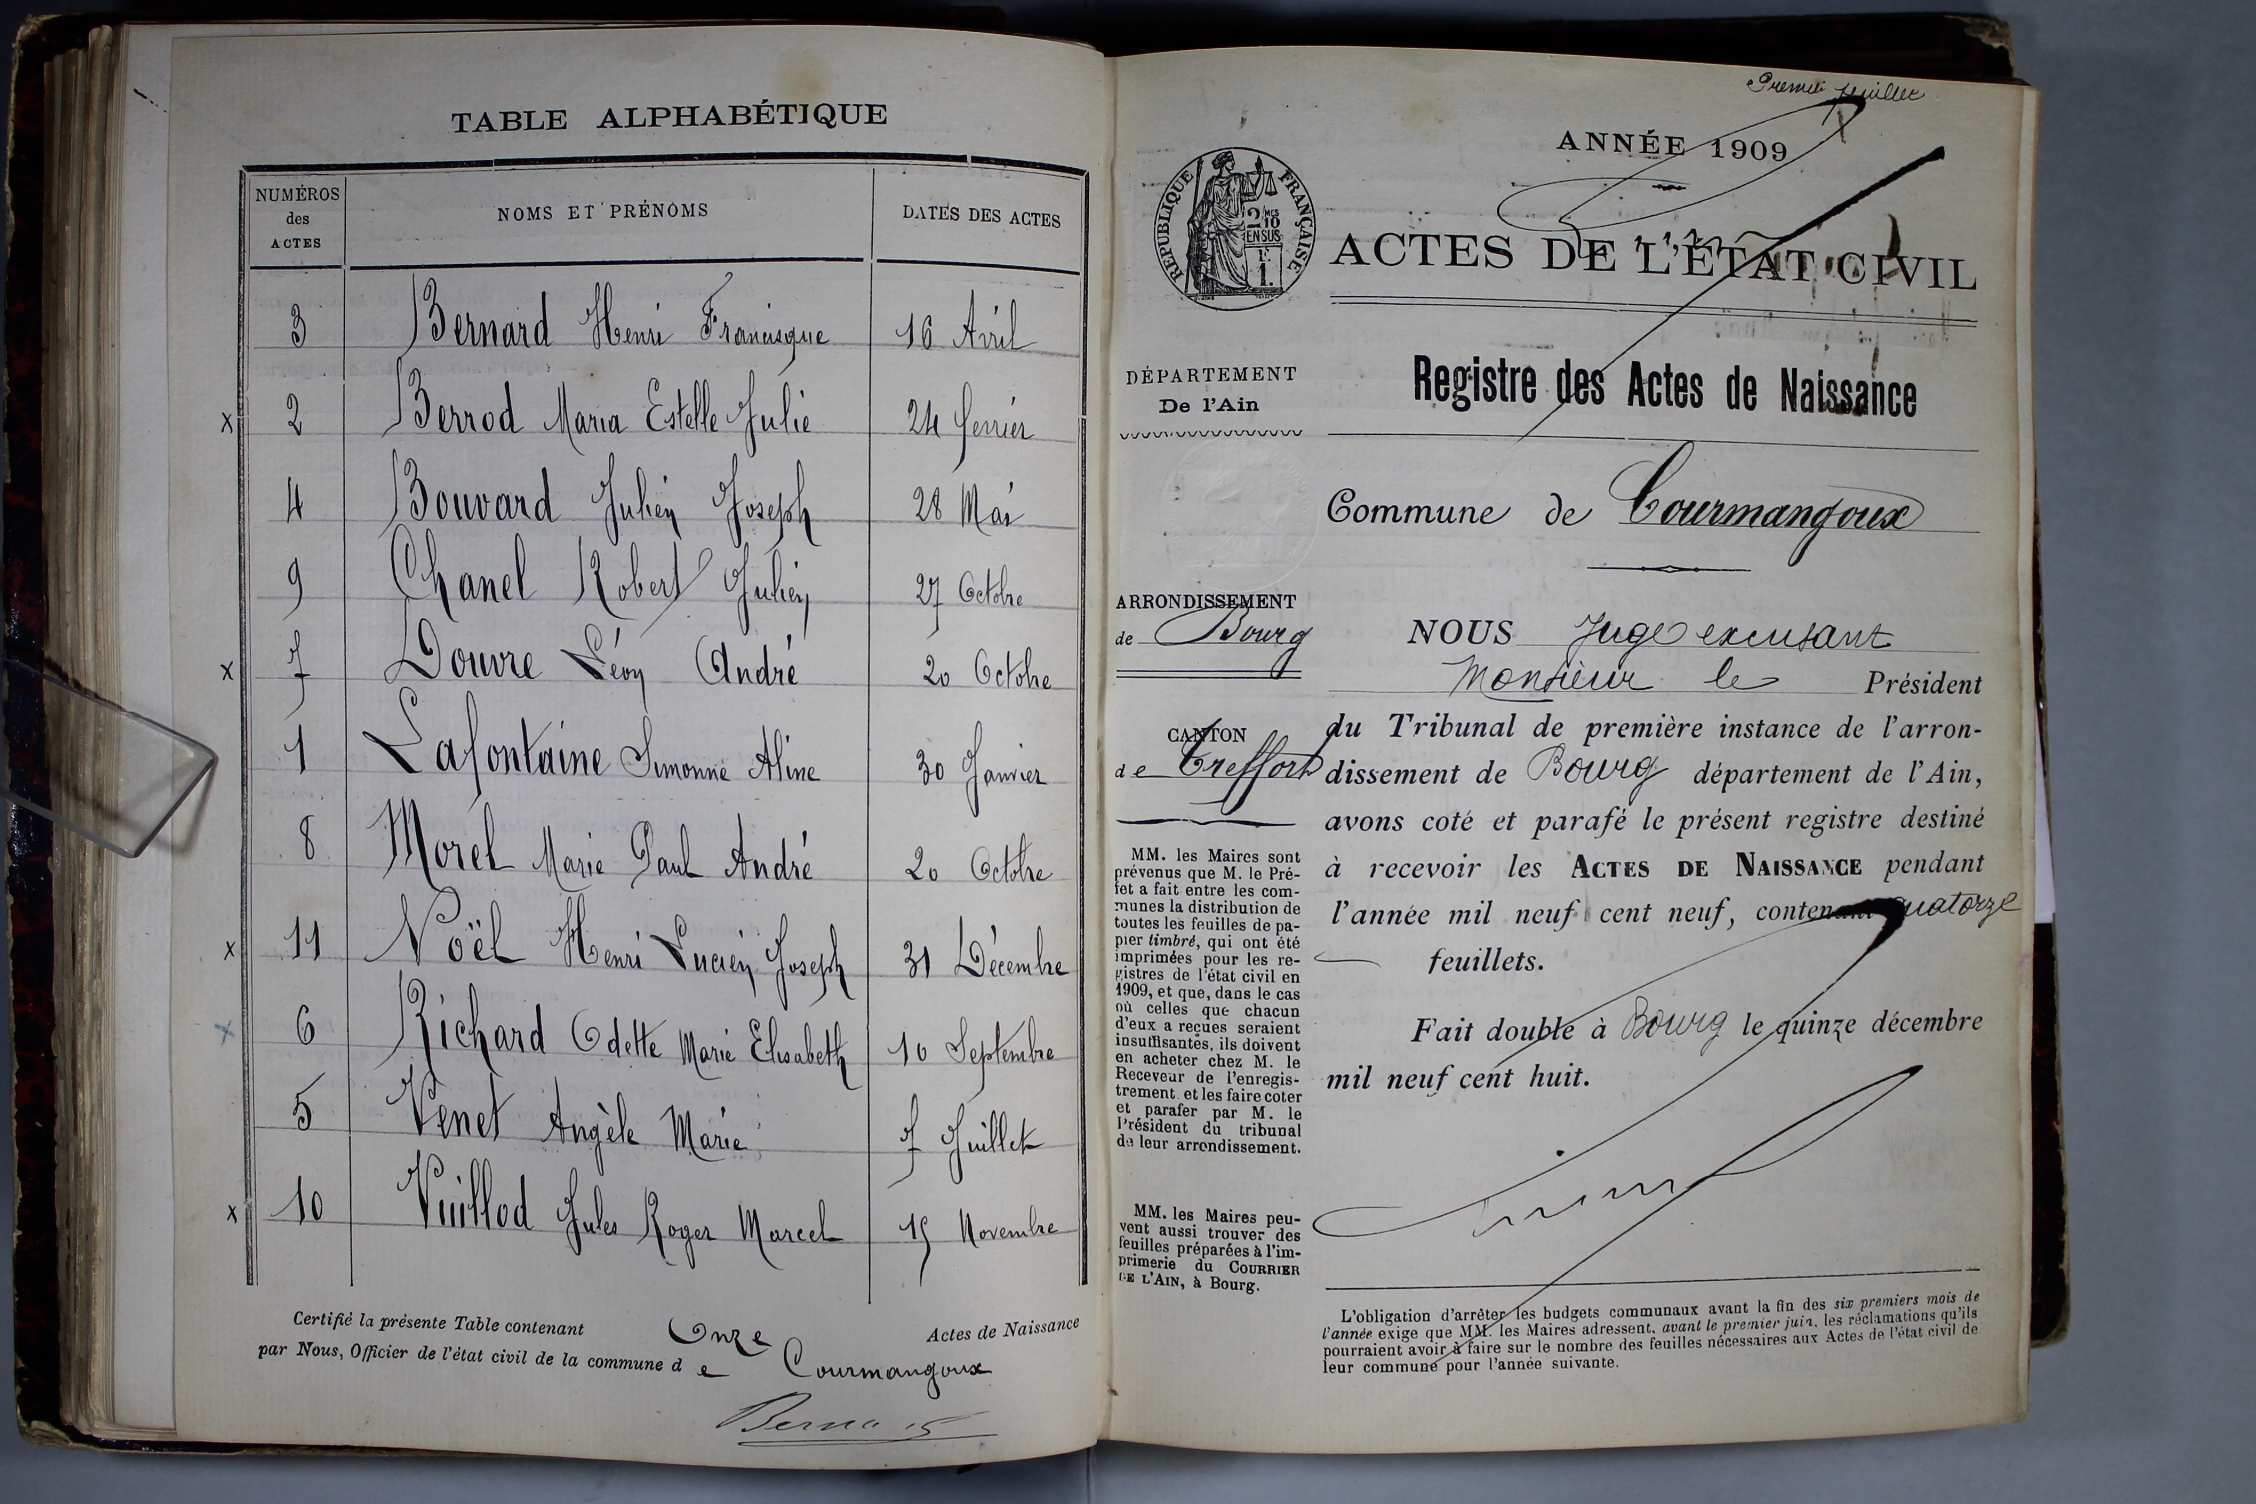 TABLE ALPHABÉTIQUE
NUMÉROS des ACTES
NOMS ET PRÉNOMS
DATES DES ACTES
3 Bernard Henri Francisque 16 Avril
x 2 Berrod Maria Estelle Julie 24 février
4 Bouvard Julien Joseph 28 Mai
9 Chanel Robert Julien 27 Octobre
x 7 Douvre Léon André 20 Octobre
1 Lafontaine Simonne Aline 30 Janvier
8 Morel Marie Paul André 20 Octobre
x 11 Noël Henri Lucien Joseph 31 Décembre
x 6 Richard Odette Marie Elisabeth 10 Septembre
5 Venet Angèle Marie 7 Juillet
x 10 Vuillod Jules Roger Marcel 15 Novembre
Certifié la présente Table contenant Onze Actes de Naissance
par Nous, Officier de l'état civil de la commune de Courmangoux
Premier feuillet
ANNÉE 1909
RÉPUBLIQUE FRANÇAISE
2/10
EN SUS
1.
ACTES DE L'ÉTAT CIVIL
DÉPARTEMENT
De l'Ain
Registre des Actes de Naissance
Commune de Courmangoux
ARRONDISSEMENT
de Bourg
CANTON
de Treffort
MM. les Maires sont
prévenus que M. le Pré-
fet a fait entre les com-
munes la distribution de
toutes les feuilles de pa-
pier timbré, qui ont été
imprimées pour les re-
gistres de l'état civil en
1909, et que, dans le cas
où celles que chacun
d'eux a reçues seraient
insuffisantes, ils doivent
en acheter chez M. le
Receveur de l'enregis-
trement et les faire coter
et parafer par M. le
Président du tribunal
de leur arrondissement.
MM. les Maires peu-
vent aussi trouver des
feuilles préparées à l'im-
primerie du COURRIER
DE L'AIN, à Bourg.
NOUS Juge excusant
Monsieur le Président
du Tribunal de première instance de l'arron-
dissement de Bourg département de l'Ain,
avons coté et parafé le présent registre destiné
à recevoir les ACTES DE NAISSANCE pendant
l'année mil neuf cent neuf, contenant quatorze
feuillets.
Fait double à Bourg le quinze décembre
mil neuf cent huit.
L'obligation d'arrêter les budgets communaux avant la fin des six premiers mois de
l'année exige que MM. les Maires adressent, avant le premier juin, les réclamations qu'ils
pourraient avoir à faire sur le nombre des feuilles nécessaires aux Actes de l'état civil de
leur commune pour l'année suivante.